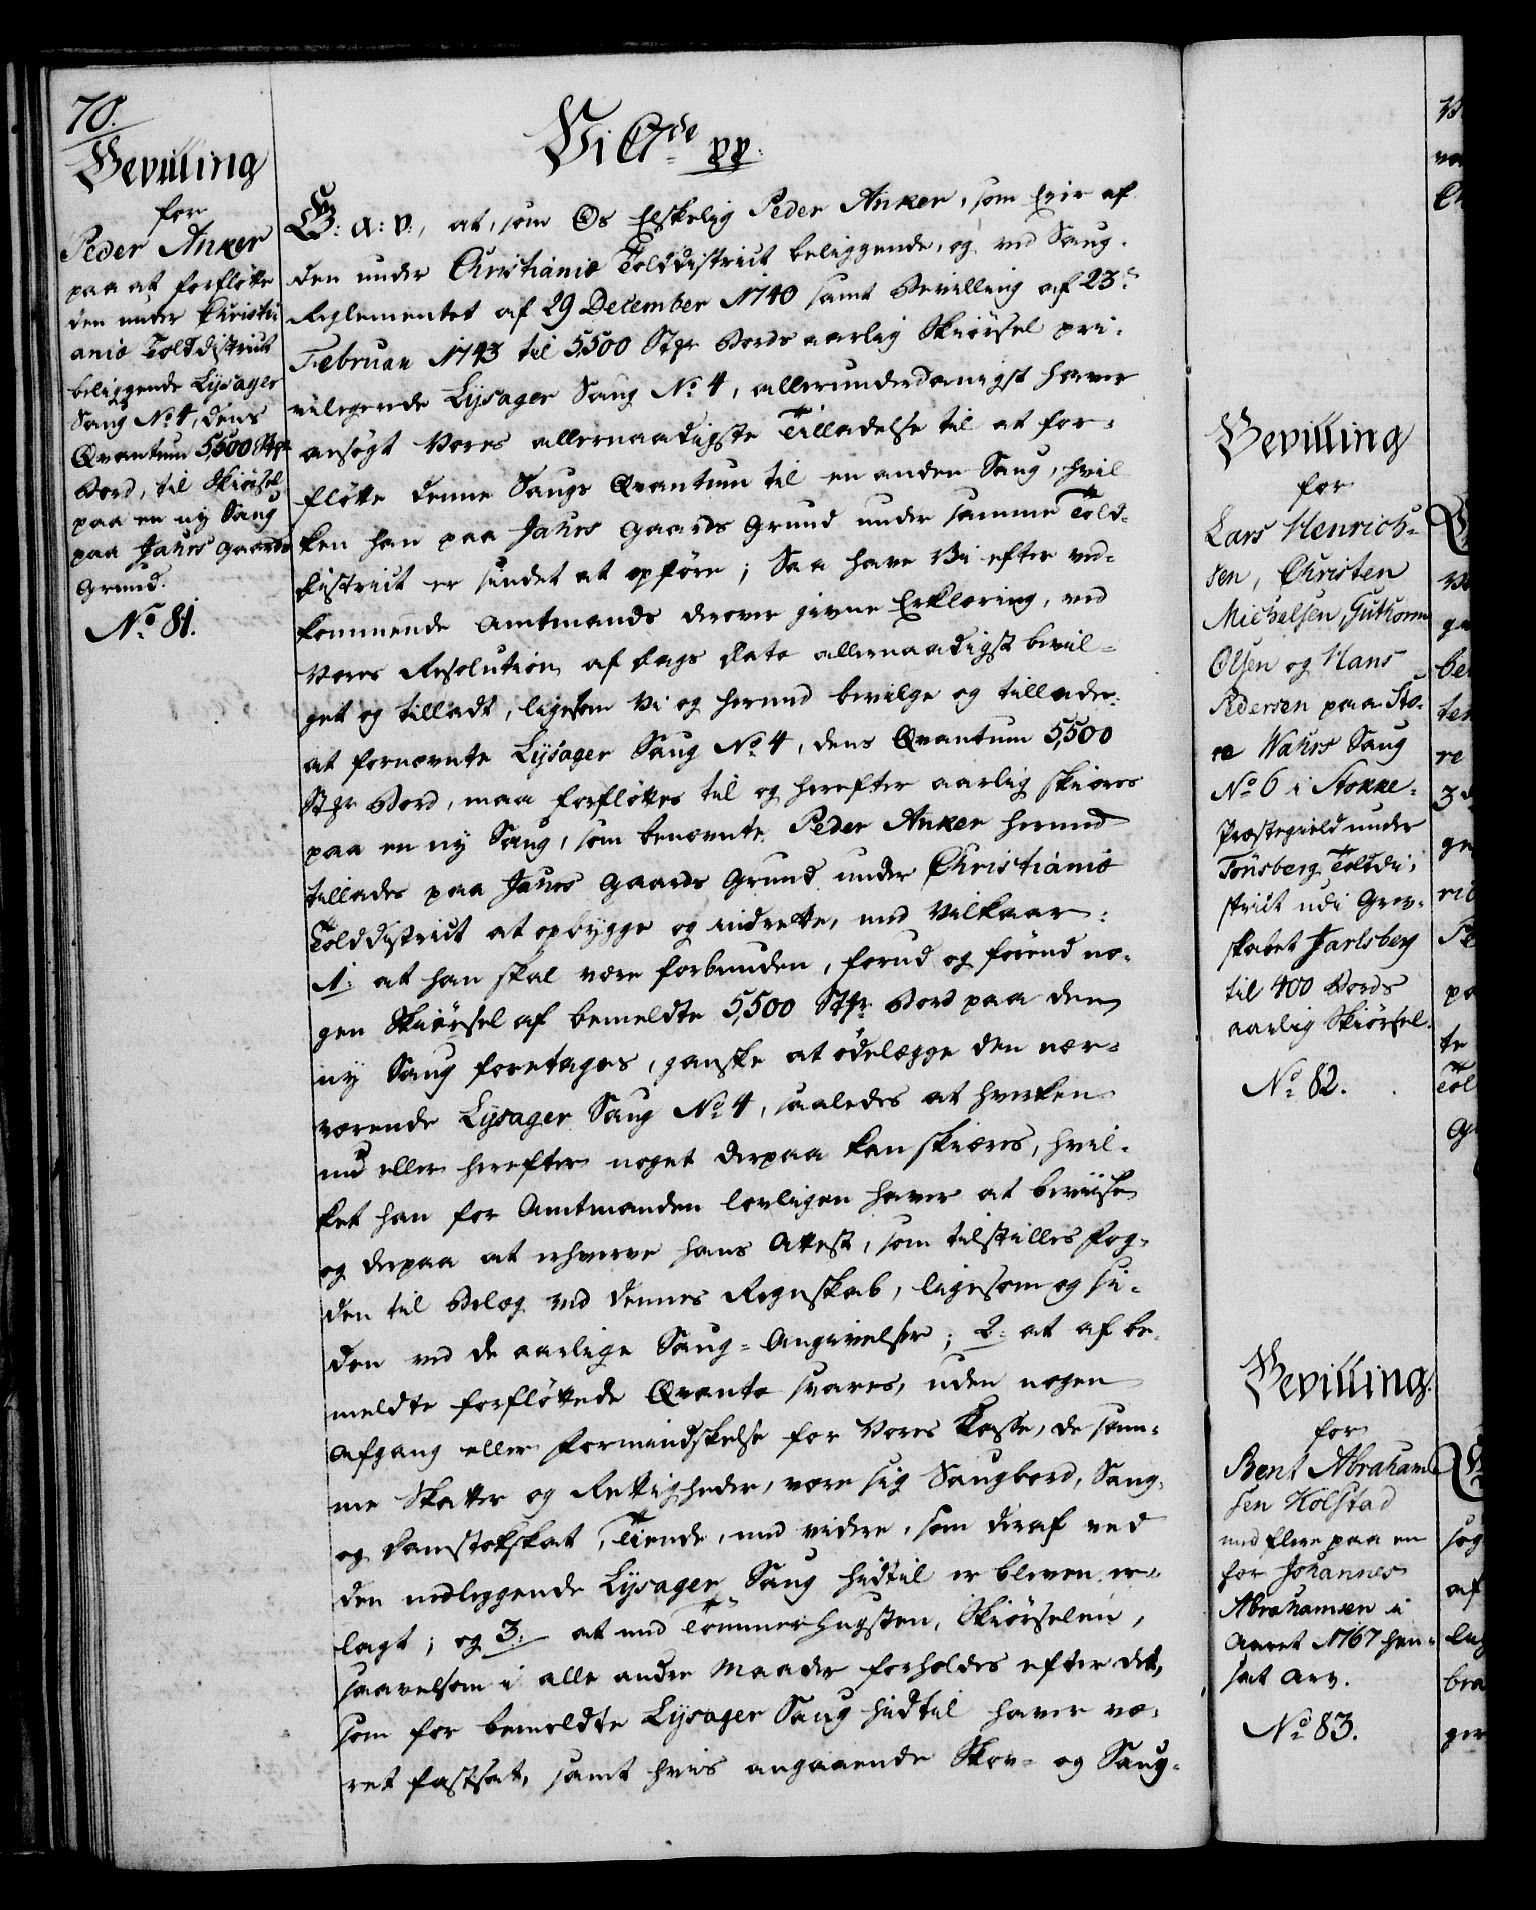 70.
Bevilling
for
Peder Anker
paa at forfløtte
den under Christi-
ania Tolddistrict
beliggende Lysager
Saug No 4, dens
Qvantum 5,500 Stpr
Bord, til Skiørsel
paa en ny Saug
paa Jahrs Gaards
Grund.
No 81.
Vi C 7de pp:
G: A: V:, at, som Os Elskelig Peder Anker, som Eier af
den under Christiania Tolddistrict beliggende, og ved Saug-
Reglementet af 29 December 1740 samt Bevilling af 23de
Februar 1743 til 5,500 Stpr Bords aarlig Skiørsel pri-
vilegerede Lysager Saug No 4, allerunderdanigst haver
ansøgt Vores allernaadigste Tilladelse til at for-
fløtte denne Saugs Qvantum til en anden Saug, hvil-
ken han paa Jahrs Gaards Grund under samme Told-
district er sindet at opføre; Saa have Vi efter ved-
kommende Amtmands derover givne Erklæring, ved
Vores Resolution af Dags Dato allernaadigst bevil-
get og tilladt, ligesom Vi og hermed bevilge og tillade:
at fornævnte Lysager Saug No 4, dens Qvantum 5,500
Stpr Bord, maa forfløttes til og herefter aarlig skiæres
paa en ny Saug, som benævnte Peder Anker hermed
tillades paa Jahrs Gaards Grund under Christiania
Tolddistrict at opbygge og indrette, med Vilkaar:
1: at han skal være forbunden, forud og førend no-
gen Skiørsel af bemeldte 5,500 Stpr Bord paa den
ny Saug foretages, ganske at ødelægge den nær-
værende Lysager Saug No 4, saaledes at hverken
nu eller herefter noget derpaa kan skiæres, hvil-
ket han for Amtmanden lovligen haver at beviise
og derpaa at erhverve hans Attest, som tilstilles Fog-
den til Belæg ved dennes Regnskab, ligesom og si-
den ved de aarlige Saug-Angivelser; 2: at af be-
meldte forfløttede Qvanto svares, uden nogen
Afgang eller Formindskelse for Vores Kasse, de sam-
me Skatter og Rettigheder, være sig Saugbord, Saug-
og Damstokskat, Tiende, med videre, som deraf ved
den nedliggende Lysager Saug hidtil er bleven er-
lagt; og 3: at med Tømmerhugsten, Skiørselen,
saavelsom i alle andre Maader forholdes efter det,
som for bemeldte Lysager Saug hidtil haver væ-
ret fastsat, samt hvis angaaende Skov- og Saug-
Bevilling
for
Lars Henrich-
sen, Christen
Michelsen, Guthorm
Olsen og Hans
Pedersen paa Sto-
re Wahrs Saug
No 6 i Stokke-
Præstegield under
Tønsberg Tolddi-
strict udi Grev-
skabet Jarlsberg
til 400 Bords
aarlig Skiørsel.
No 82.
Bevilling
for
Bent Abraham-
sen Holstad
med flere paa en
for Johannes
Abrahamsen i
Aaret 1767 hen-
sat Arv.
No 83.